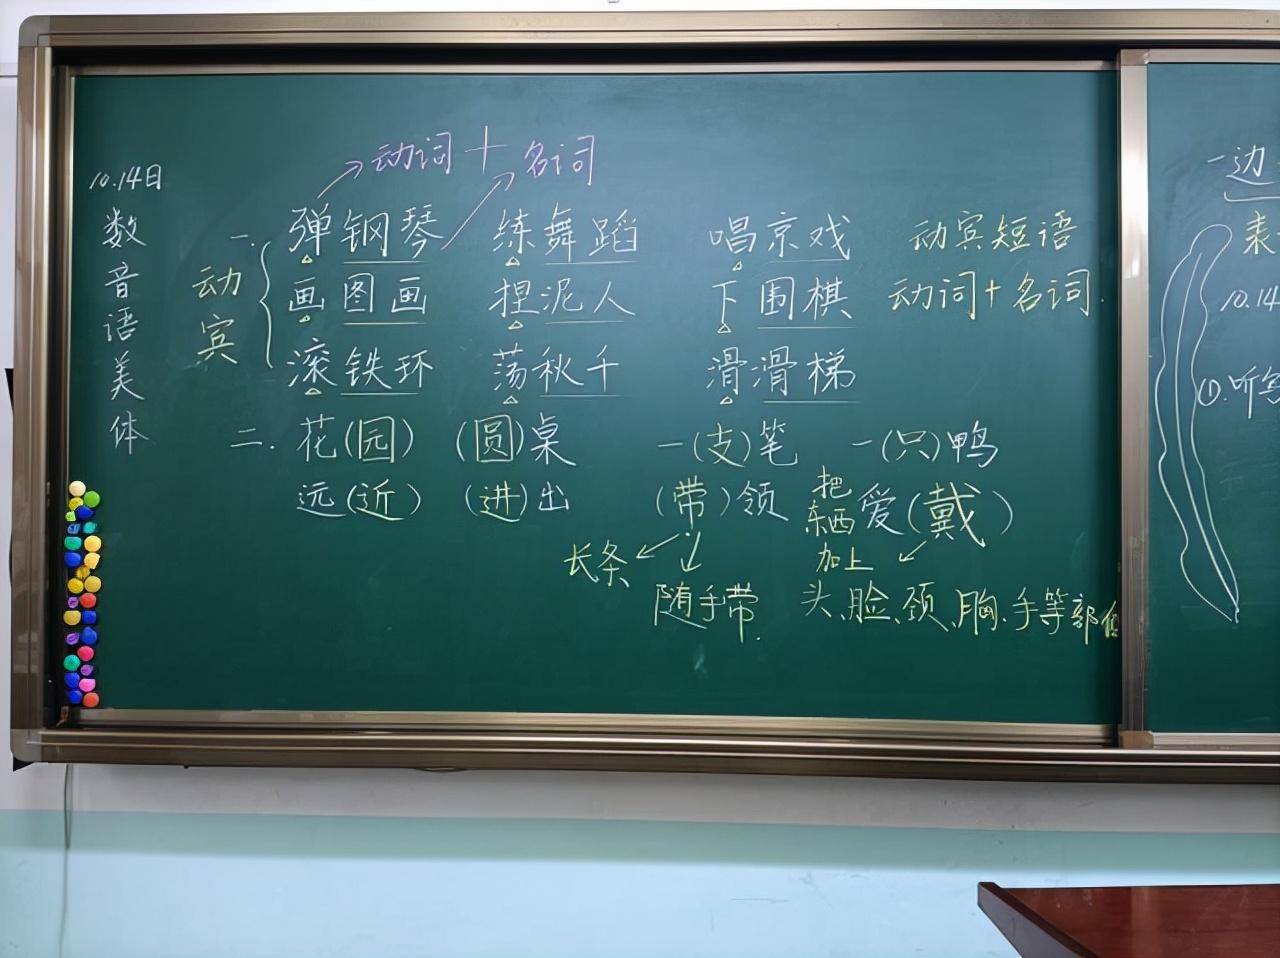 10.14日
数
音
语
美
体
动词+名词
一.
动宾
弹钢琴 练舞蹈 唱京戏 动宾短语
画图画 捏泥人 下围棋 动词+名词.
滚铁环 荡秋千 滑滑梯
二. 花(园) (圆)桌 一(支)笔 一(只)鸭
远(近) (进)出 (带)领 爱(戴)
长条
随手带.
把东西加上
头、脸、颈、胸、手等部位
一边
表
10.14
①.听写